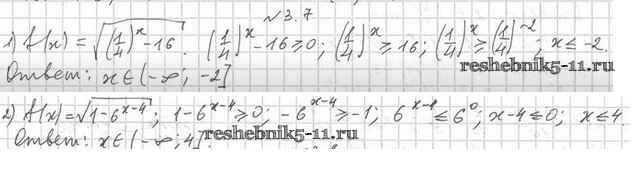 №3.7
1) f(x) = √((1/4)^x - 16). (1/4)^x - 16 ≥ 0; (1/4)^x ≥ 16; (1/4)^x ≥ (1/4)^-2; x ≤ -2.
reshebnik5-11.ru
Ответ: x ∈ (-∞; -2]
2) f(x) = √(1-6^(x-4)); 1-6^(x-4) ≥ 0; -6^(x-4) ≥ -1; 6^(x-4) ≤ 6^0; x-4 ≤ 0; x ≤ 4.
Ответ: x ∈ (-∞; 4].
reshebnik5-11.ru